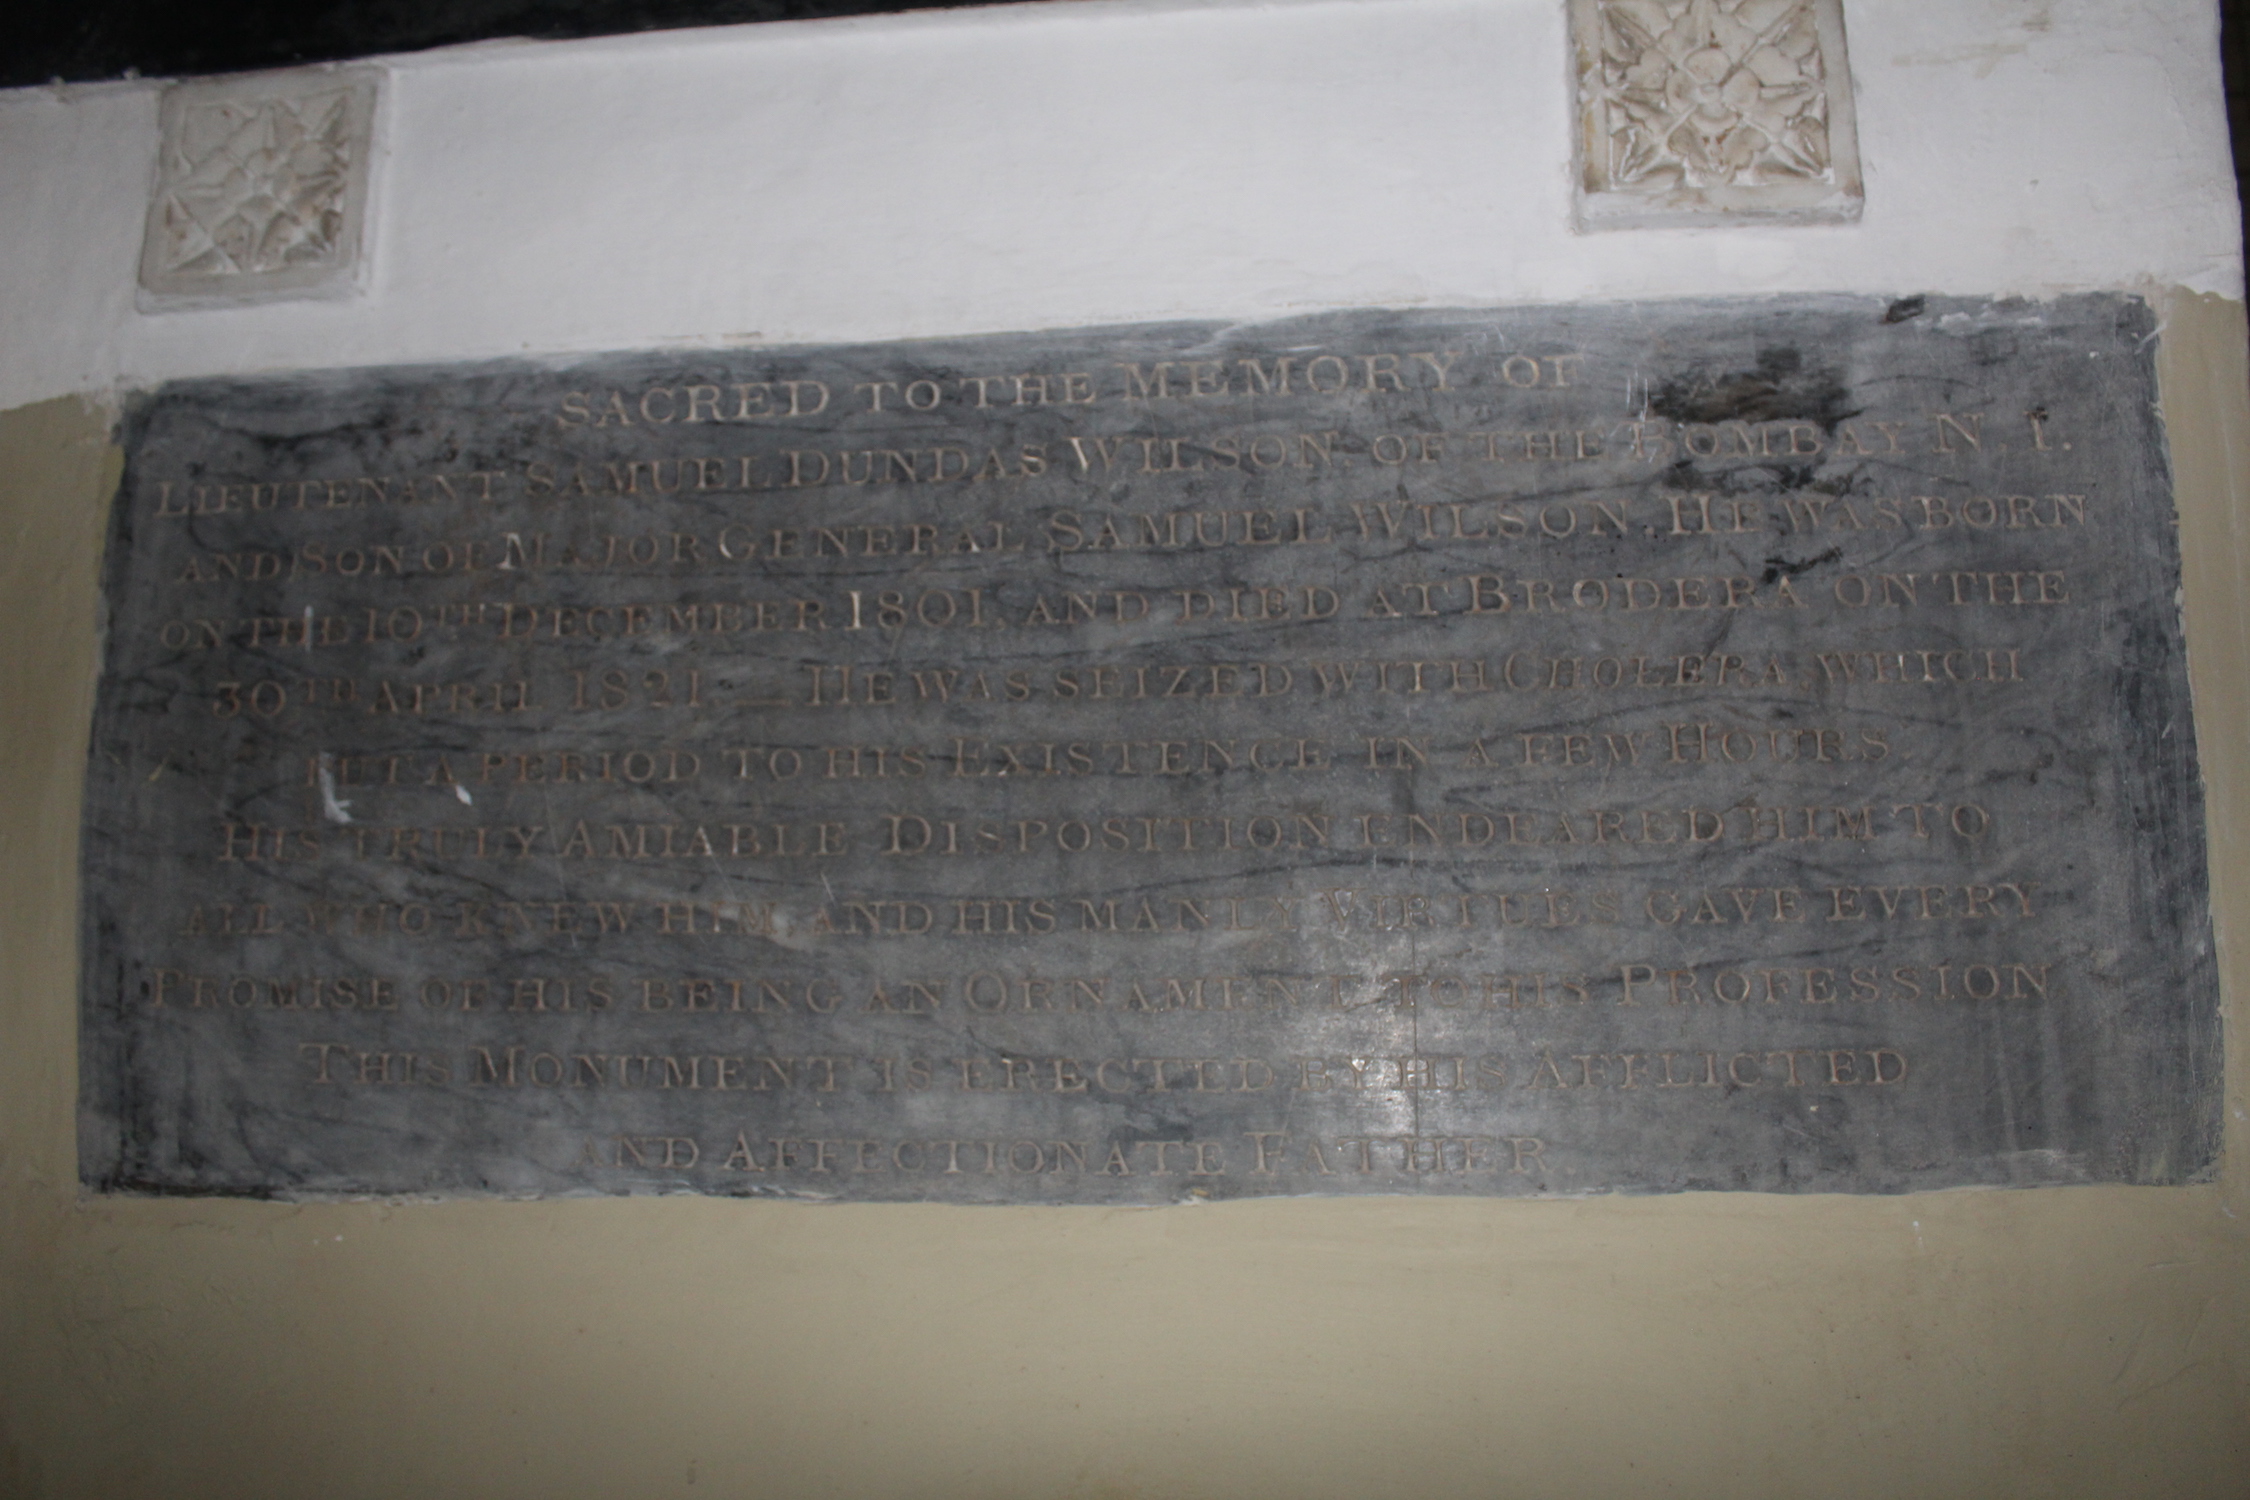 SACRED TO THE MEMORY OF
LIEUTENANT SAMUEL DUNDAS WILSON. OF THE BOMBAY N. I.
AND SON OF MAJOR GENERAL SAMUEL WILSON. HE WAS BORN
ON THE 10TH DECEMBER 1801, AND DIED AT BRODERA ON THE
30TH APRIL 1821. — HE WAS SEIZED WITH CHOLERA, WHICH
PUT A PERIOD TO HIS EXISTENCE IN A FEW HOURS.
HIS TRULY AMIABLE DISPOSITION ENDEARED HIM TO
ALL WHO KNEW HIM, AND HIS MANLY VIRTUES GAVE EVERY
PROMISE OF HIS BEING AN ORNAMENT TO HIS PROFESSION
THIS MONUMENT IS ERECTED BY HIS AFFLICTED
AND AFFECTIONATE FATHER